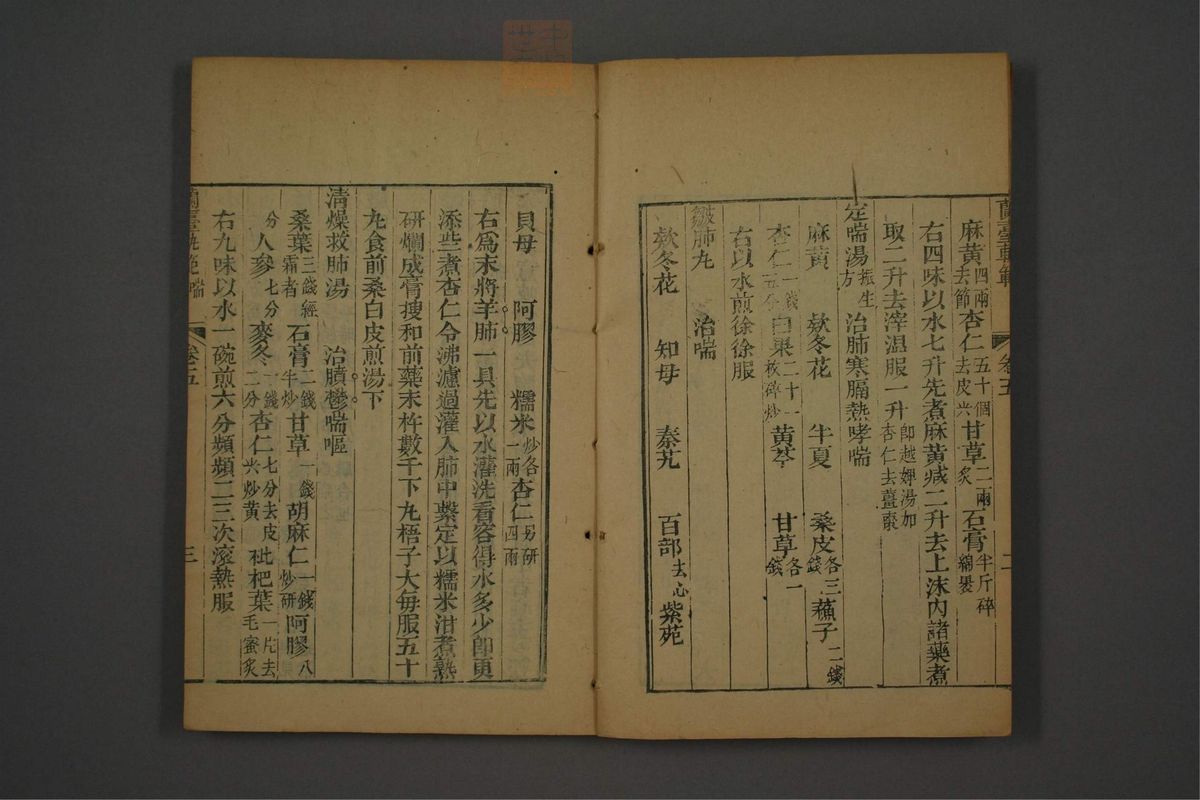 蘭臺軌範 卷五 二
麻黃四兩去節杏仁五十個去皮尖甘草二兩炙石膏半斤碎綿裹
右四味以水七升先煮麻黃減二升去上沫內諸藥煮
取二升去滓温服一升即越婢湯加杏仁去薑棗
定喘湯振生方 治肺寒膈熱哮喘
麻黃 欵冬花 半夏 桑皮各三錢 蘓子二錢
杏仁一錢五分 白果二十一枚碎炒 黃芩 甘草各一錢
右以水煎徐徐服
皺肺丸 治喘
欵冬花 知母 秦艽 百部去心 紫菀
貝母 阿膠 糯米炒各一兩 杏仁另研四兩
右為末將羊肺一具先以水灌洗看容得水多少即更
添些煮杏仁令沸濾過灌入肺中繫定以糯米泔煮熟
研爛成膏搜和前藥末杵數千下丸梧子大每服五十
丸食前桑白皮煎湯下
清燥救肺湯 治膹鬱喘嘔
桑葉三錢經霜者石膏二錢半炒甘草一錢胡麻仁一錢炒研阿膠八
分人參七分麥冬一錢二分杏仁七分去皮尖炒黃枇杷葉一片去毛蜜炙
右九味以水一碗煎六分頻頻二三次滚熱服
蘭臺軌範 喘 卷五 三